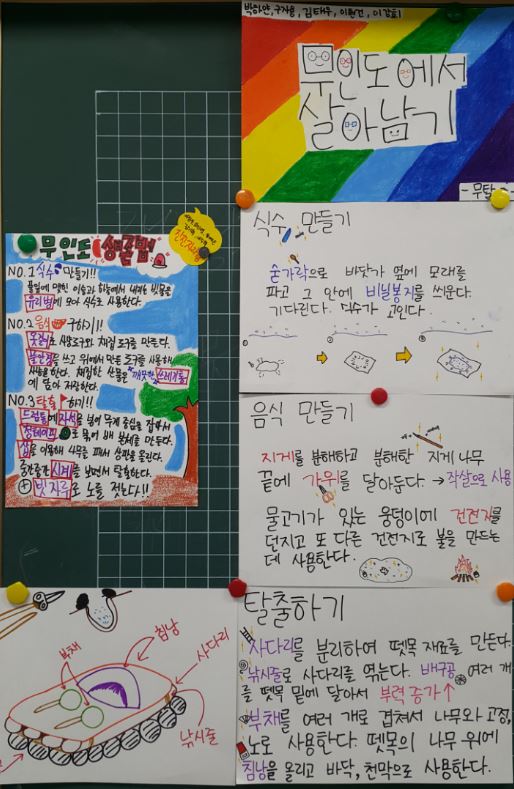 박하얀, 구자용, 김태우, 이현건, 이감회
무인도에서
살아남기
- 무탈
식수 만들기
숟가락으로 바닷가 옆에 모래를
파고 그 안에 비닐봉지를 씌운다.
기다린다. 식수가 고인다.
음식 만들기
지게를 분해하고 분해한 지게 나무
끝에 가위를 달아둔다. → 작살으로 사용
물고기가 있는 웅덩이에 건전지를
던지고 또 다른 건전지로 불을 만드는
데 사용한다.
탈출하기
사다리를 분리하여 뗏목 재료를 만든다.
낚시줄로 사다리를 엮는다. 배구공 여러 개
를 뗏목 밑에 달아서 부력 증가↑
부채를 여러 개로 겹쳐서 나무와 고정,
노로 사용한다. 뗏목의 나무 위에
침낭을 올리고 바닥, 천막으로 사용한다.
무인도 생존법
NO.1 식수 만들기!!
풀잎에 맺힌 이슬과 하늘에서 내려온 빗물은
유리병에 모아 식수로 사용한다.
NO.2 음식 구하기!!
로 사용도구와 채집 도구를 만든다.
물안경을 쓰고 위에서 만든 도구를 사용해
사냥을 한다. 채집한 산물은 "깨끗한" 쓰레기통
에 담아 저장한다.
NO.3 탈출 하기!!
드럼통에 자석을 넣어 무게 중심을 잡아서
청테이프로 묶어 배 본체를 만든다.
삽을 이용해 나무를 패서 삼판을 올린다.
중간중간 시계를 보면서 탈출한다.
+ 빗자루로 노를 젓는다!!
부채
침낭
사다리
낚시줄